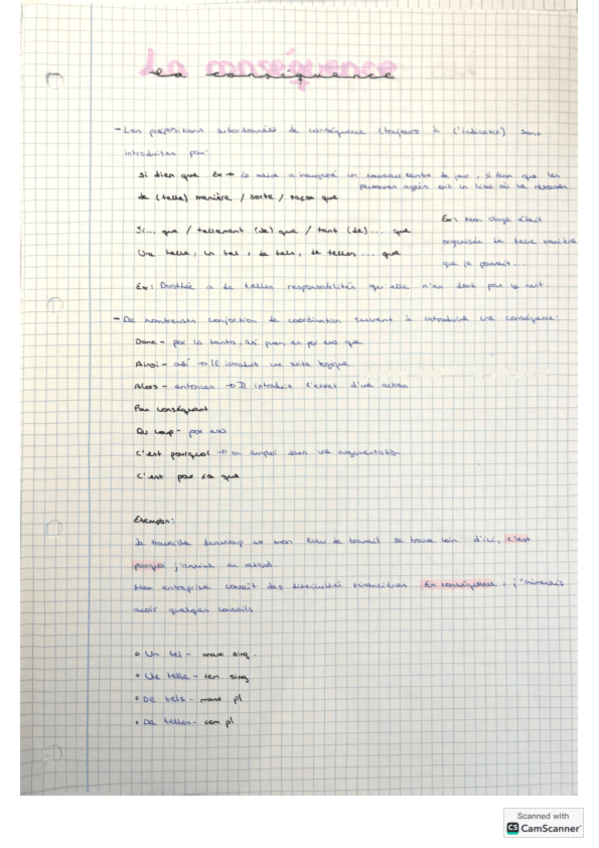 La conséquence
la conséquence
- Les propositions subordonnées de conséquence (toujours à l'indicatif) sont
introduites par:
Si bien que Ex → Le maire a inauguré un nouveau centre de jour, si bien que les
personnes agées ont un lieu où se
de (telle) manière / sorte / façon que
Si... que / tellement (de) que / tant (de)... que
Ex: Mon stage était
Une telle, un tel, de tels, de telles ... que
organisée de telle manière
que je pouvait...
Ex: Dorothée a de telles responsabilités qu'elle n'en dort pas la nuit.
- De nombreuses conjoction de coordination servent à introduire une conséquence:
Donc - por lo tanto, así pues, es por eso que
Ainsi - así → Il introduit une suite logique
Alors - entonces → Il introduit l'effet d'une action
Par conséquant
Du coup - por eso
C'est pourquoi → on emploi dans une argumentation
C'est pour ça que
Exemples:
Je travaille beaucoup et mon lieu de travail se trouve loin d'ici, c'est
pourquoi j'arrive en retard.
Mon entreprise connaît des difficultés financières. En conséquence, j'aimerais
avoir quelques conseils
• Un tel - masc sing.
• Une telle - fem sing
• De tels - masc pl
• De telles - fem pl
Scanned with
CS CamScanner